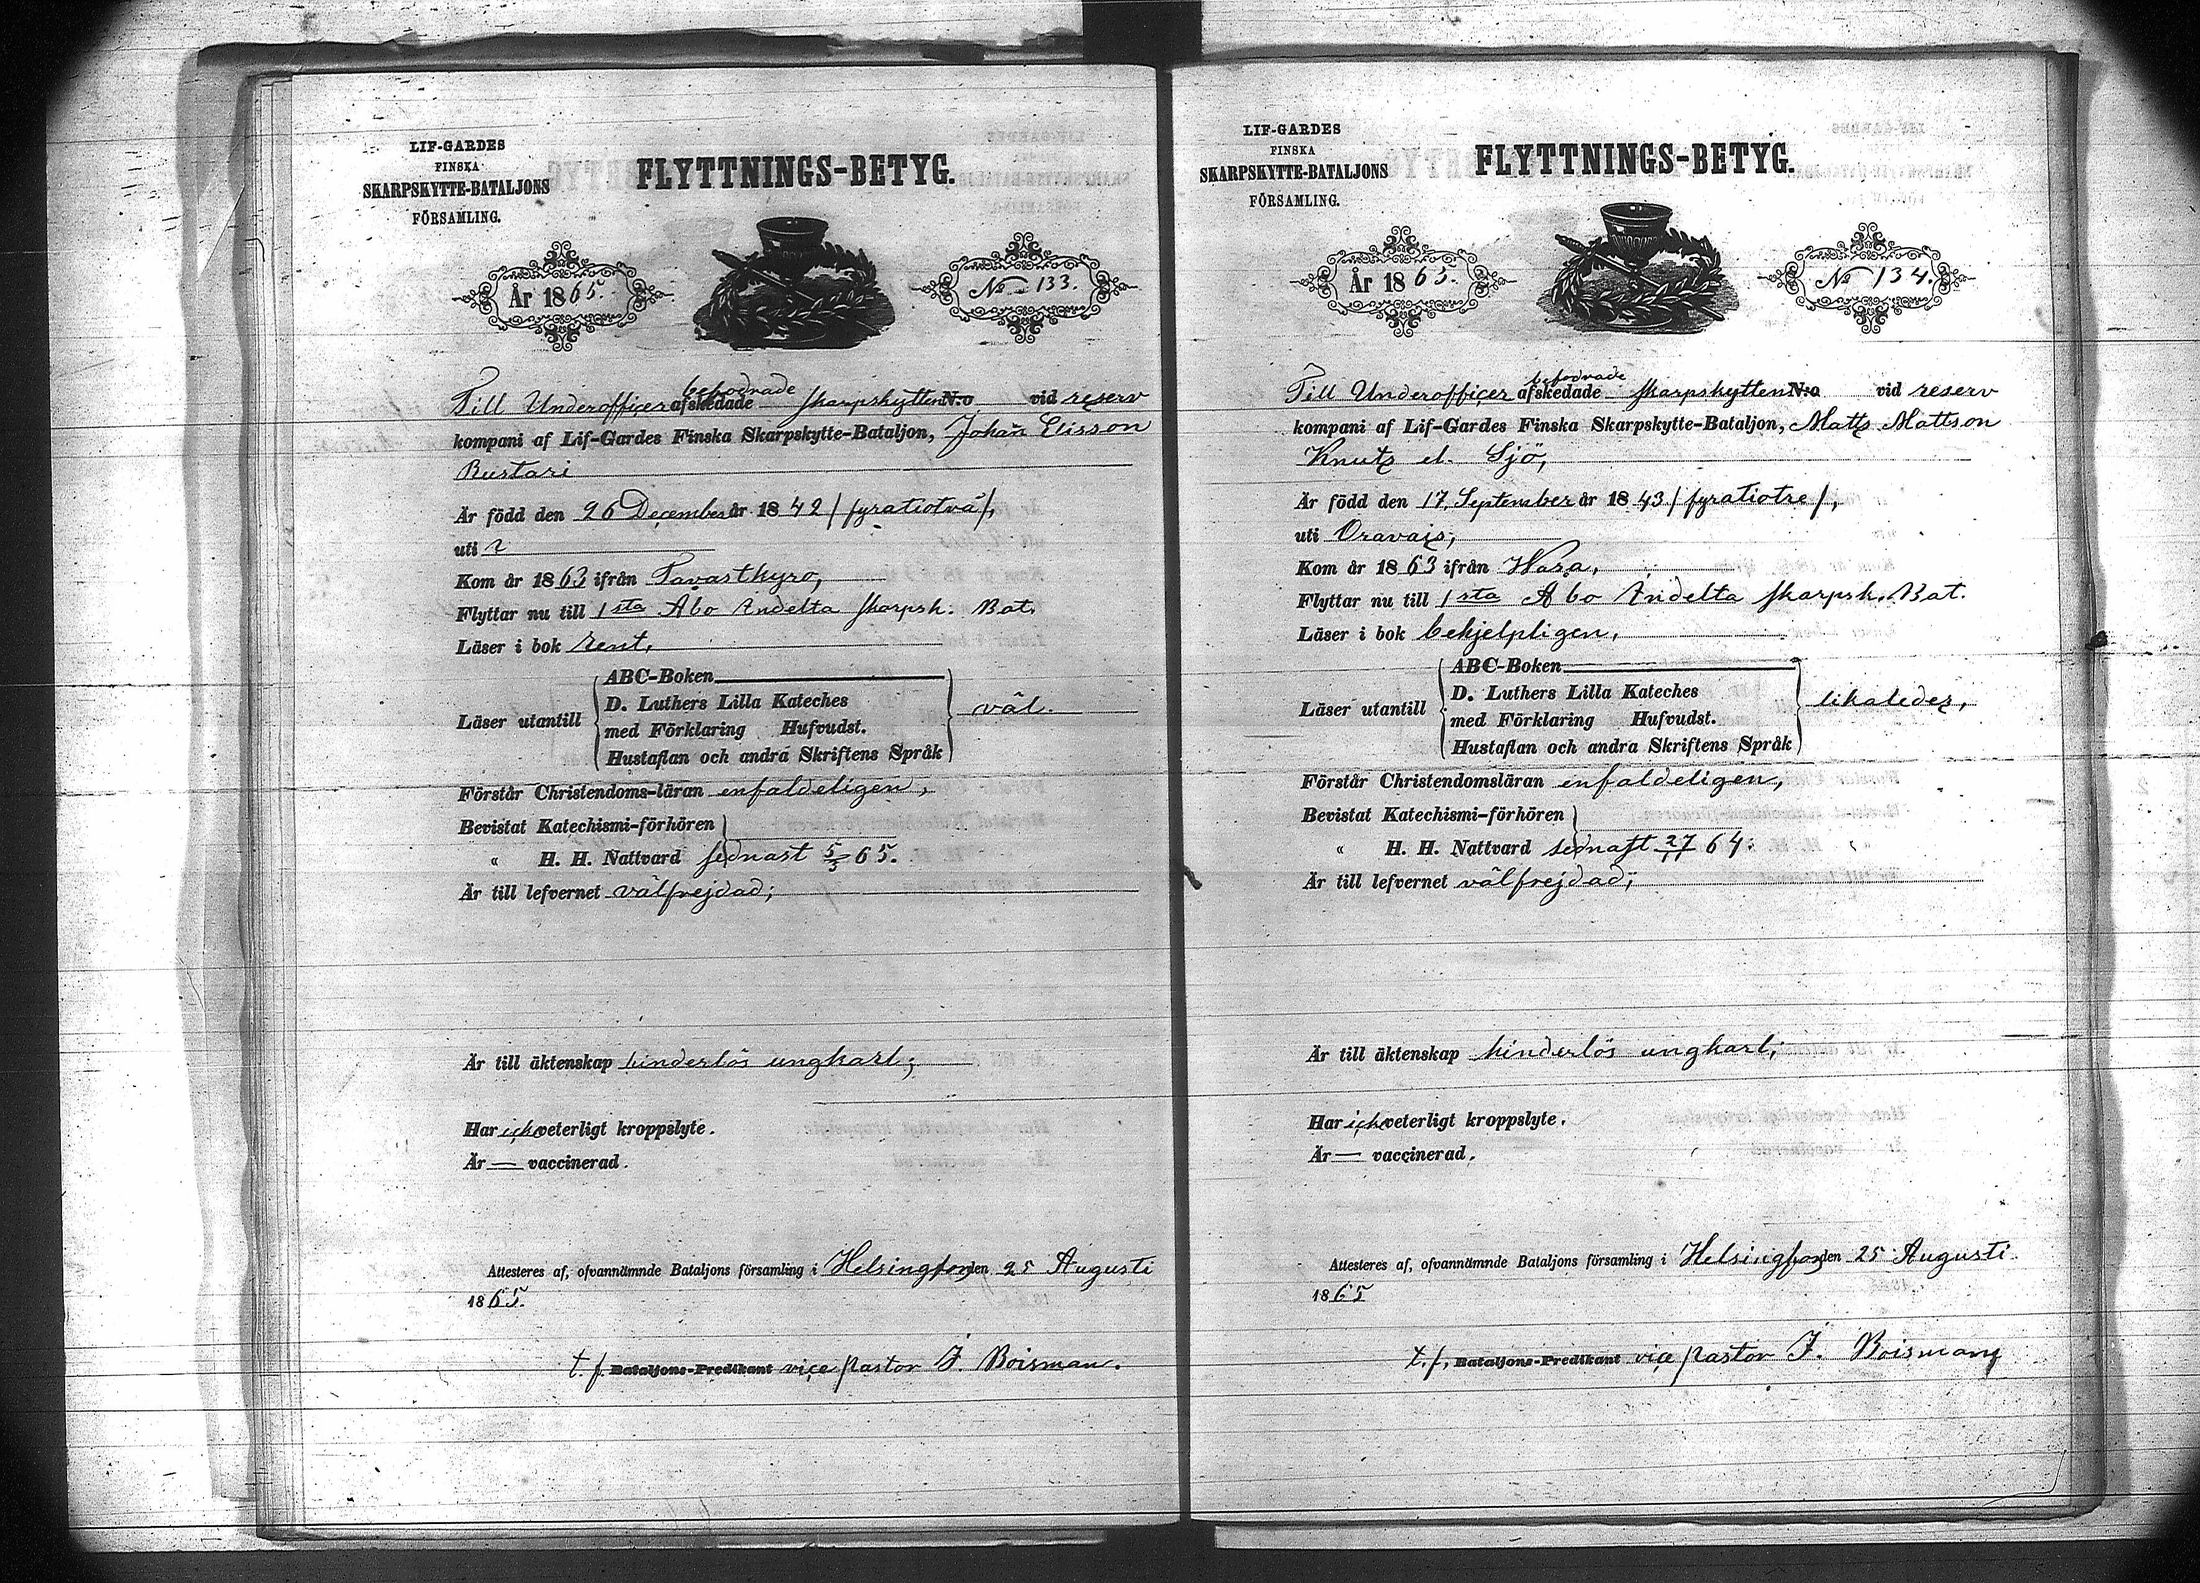 LIF-GARDES
FINSKA
SKARPSKYTTE-BATALJONS
FÖRSAMLING.
FLYTTNINGS-BETYG.
År 1865.
No 133.
befodrade
Till Underofficer afskedade skarpskytten N:o vid reserv
kompani af Lif-Gardes Finska Skarpskytte-Bataljon, Johan Elisson
Rustari
Är född den 26 December år 1842 / fyratiotvå /,
uti
Kom år 1863 ifrån Tavastkyro,
Flyttar nu till 1sta Åbo Indelta skarpsk. Bat.
Läser i bok rent,
Läser utantill
ABC-Boken
D. Luthers Lilla Kateches
med Förklaring Hufvudst.
Hustaflan och andra Skriftens Språk
väl.
Förstår Christendoms-läran enfaldeligen,
Bevistat Katechismi-förhören
" H. H. Nattvard sednast 5/3 65.
Är till lefvernet välfrejdad;
Är till äktenskap hinderlös ungkarl;
Har ick veterligt kroppslyte.
Är — vaccinerad.
Attesteres af, ofvannämnde Bataljons församling i Helsingfors den 25 Augusti
1865.
t. f. Bataljons-Predikant vice pastor F. Boisman.
LIF-GARDES
FINSKA
SKARPSKYTTE-BATALJONS
FÖRSAMLING.
FLYTTNINGS-BETYG.
År 1865.
No 134.
befodrade
Till Underofficer afskedade skarpskytten N:o vid reserv
kompani af Lif-Gardes Finska Skarpskytte-Bataljon, Matts Mattson
Knuts el. Sjö,
Är född den 17 September år 1843 / fyratiotre /,
uti Oravais,
Kom år 1863 ifrån Wasa,
Flyttar nu till 1sta Åbo Indelta skarpsk. Bat.
Läser i bok behjelpligen,
Läser utantill
ABC-Boken
D. Luthers Lilla Kateches
med Förklaring Hufvudst.
Hustaflan och andra Skriftens Språk
likaledes,
Förstår Christendomsläran enfaldeligen,
Bevistat Katechismi-förhören
" H. H. Nattvard sednast 27/11 64.
Är till lefvernet välfrejdad;
Är till äktenskap hinderlös ungkarl;
Har ick veterligt kroppslyte.
Är — vaccinerad.
Attesteres af, ofvannämnde Bataljons församling i Helsingfors den 25 Augusti
1865
t. f. Bataljons-Predikant vice pastor F. Boisman